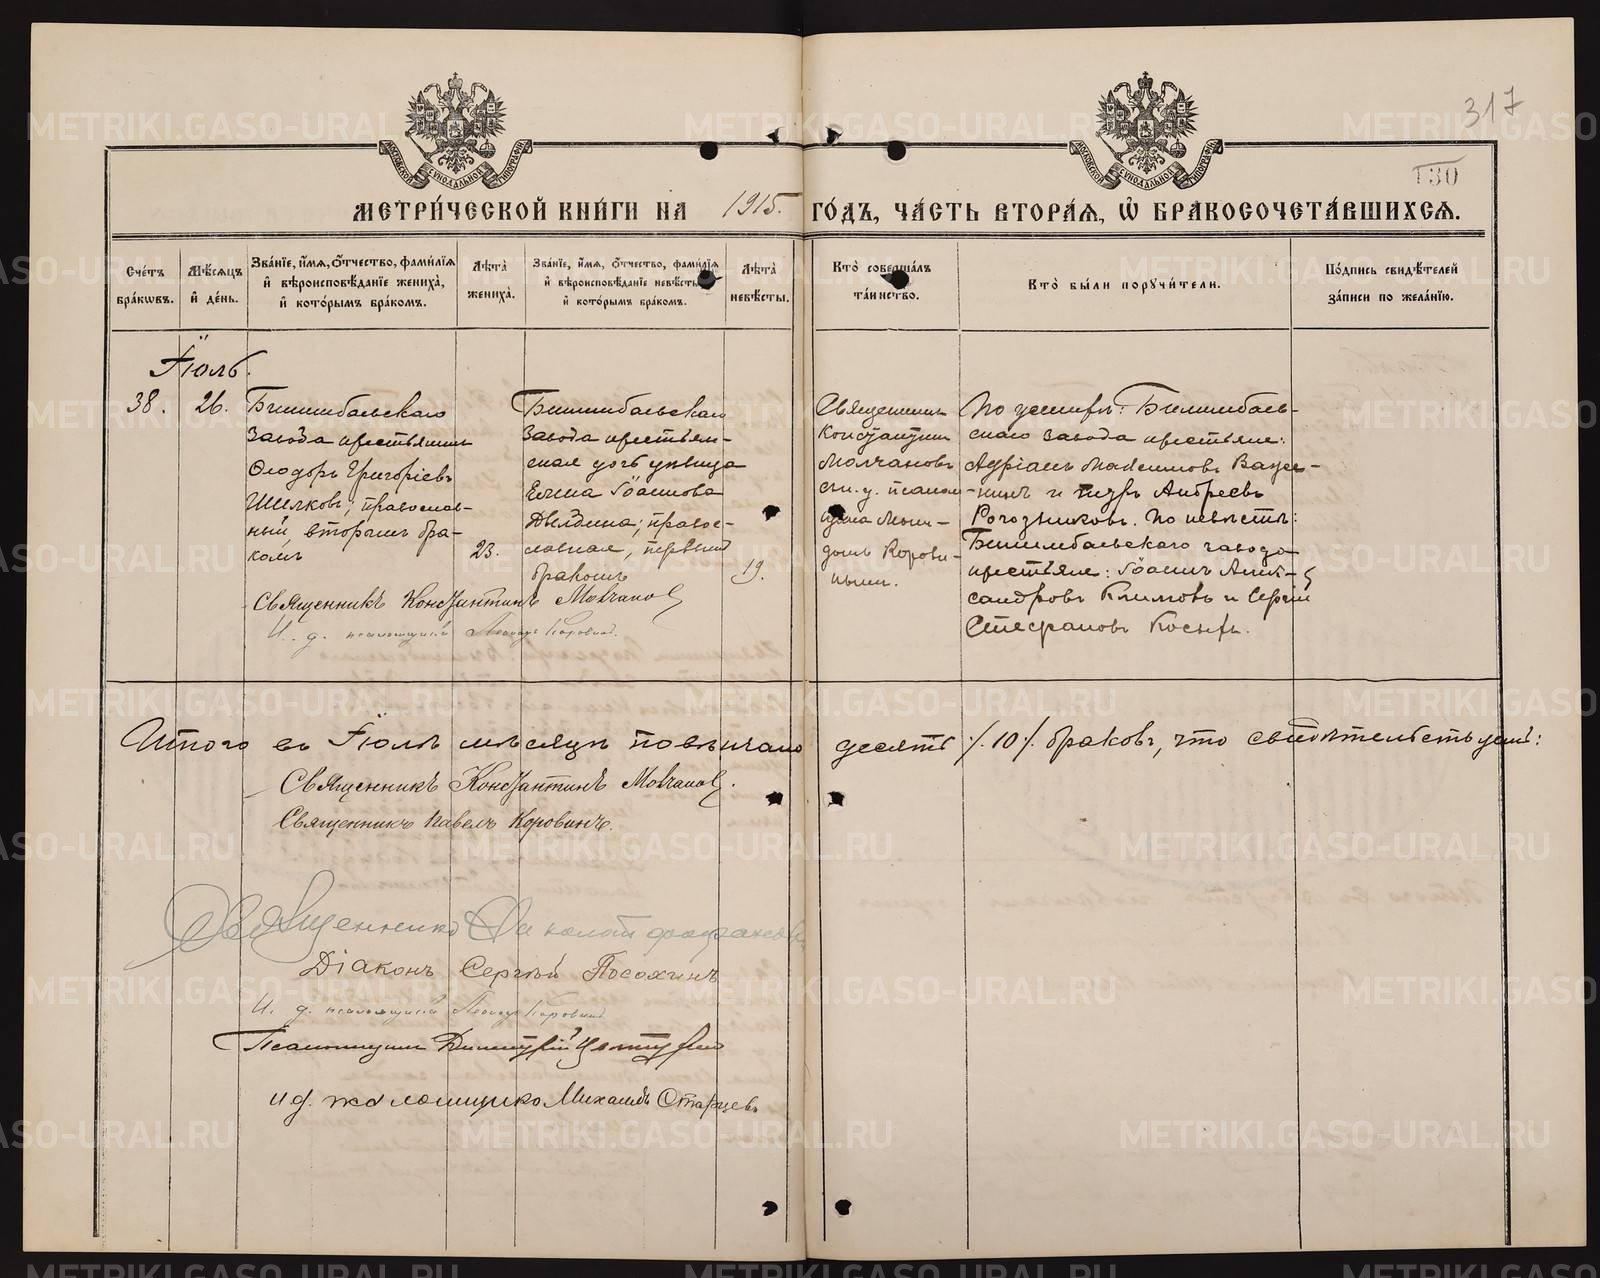 317
130
МОСКОВСКОЙ СУНОДАЛЬНОЙ ТИПОГРАФІИ
МОСКОВСКОЙ СУНОДАЛЬНОЙ ТИПОГРАФІИ
МЕТРИ́ЧЕСКОЙ КНИ́ГИ НА 1915. ГО́ДЪ, ЧА́СТЬ ВТОРА́Ѧ, Ѡ҆ БРАКОСОЧЕТА́ВШИХСѦ.
Сче́тъ бра́кѡвъ.
Мѣ́сѧцъ и҆ де́нь.
Зва́нїе, и҆́мѧ, ѻ҆́тчество, фамѝлїѧ и҆ вѣроисповѣ́данїе жениха̀, и҆ кото́рымъ бра́комъ.
Лѣ́та̀ жениха̀.
Зва́нїе, и҆́мѧ, ѻ҆́тчество, фамѝлїѧ и҆ вѣроисповѣ́данїе невѣ́сты, и҆ кото́рымъ бра́комъ.
Лѣ́та̀ невѣ́сты.
Кто̀ соверша́лъ та́инство.
Кто̀ бы́ли порꙋчи́тели.
По́дпись свидѣ́телей за́писи по жела́нїю.
Іюль.
38.
26.
Билимбаевскаго
завода крестьянинъ
Ѳеодоръ Григоріевъ
Шилковъ; православ-
ный, вторымъ бра-
комъ
23.
Билимбаевскаго
завода крестьян-
ская дочь дѣвица
Елена Іоаннова
православная, первымъ
бракомъ
19.
Священникъ
Константинъ
Молчановъ
съ и. д. псалом-
Корови-
нымъ.
По женихѣ: Билимбаев-
скаго завода крестьяне:
Адріанъ Максимовъ
и Андреевъ
Рогозниковъ. По невѣстѣ:
Билимбаевскаго завода
крестьяне: Іоаннъ Алек-
сандровъ Климовъ и Сергій
Стефановъ Косыхъ.
Священникъ Константинъ Молчановъ
И. д. псаломщика Коровинъ.
Итого въ Іюлѣ мѣсяцѣ повѣнчано десять /.10/. браковъ, что свидѣтельствуемъ:
Священникъ Константинъ Молчановъ.
Священникъ Павелъ Коровинъ.
Священникъ
Діаконъ Сергій Посохинъ
И. д. псаломщика Коровинъ
Псаломщикъ Димитрій
и д. псаломщика Михаилъ Старцевъ
METRIKI.GASO-URAL.RU